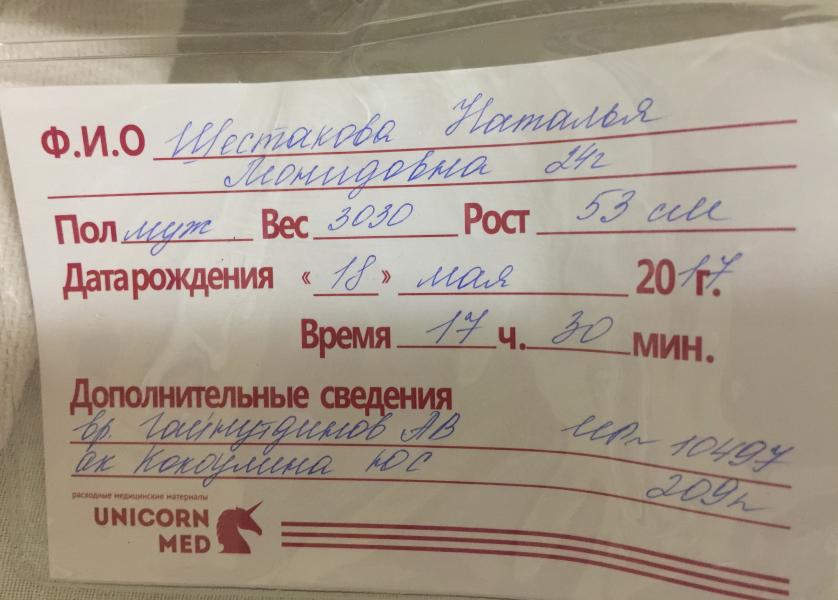 Ф.И.О Шестакова Наталья
Леонидовна 24г
Пол муж Вес 3030 Рост 53 см
Дата рождения «18» мая 2017г.
Время 17 ч. 30 мин.
Дополнительные сведения
вр. Гайнутдинов АВ 10497
ак Кокоулина ЮС 209п
расходные медицинские материалы
UNICORN
MED